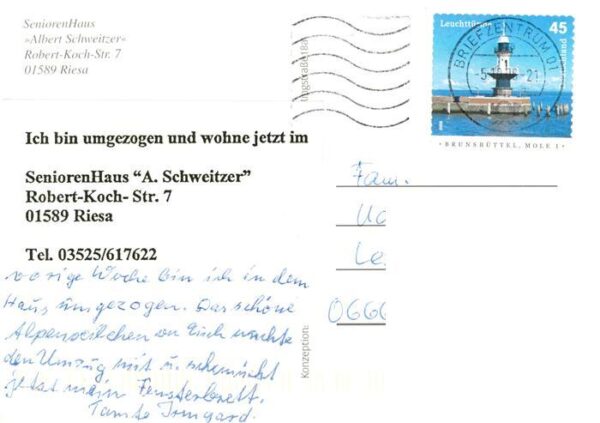 SeniorenHaus
»Albert Schweitzer«
Robert-Koch-Str. 7
01589 Riesa
Leuchttürme
45
Deutschland
BRIEFZENTRUM 01
BRUNSBÜTTEL, MOLE 1
Ich bin umgezogen und wohne jetzt im
SeniorenHaus “A. Schweitzer”
Robert-Koch- Str. 7
01589 Riesa
Tel. 03525/617622
vorige Woche bin ich in dem
Haus umgezogen. Das schöne
Alpenveilchen von Euch machte
den Umzug mit u. schmückt
jetzt mein Fensterbrett.
Tante Irmgard.
Konzeption:
Fam.
Le
0666